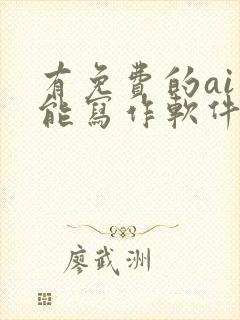 有免費的ai
能寫作軟件
廖武洲